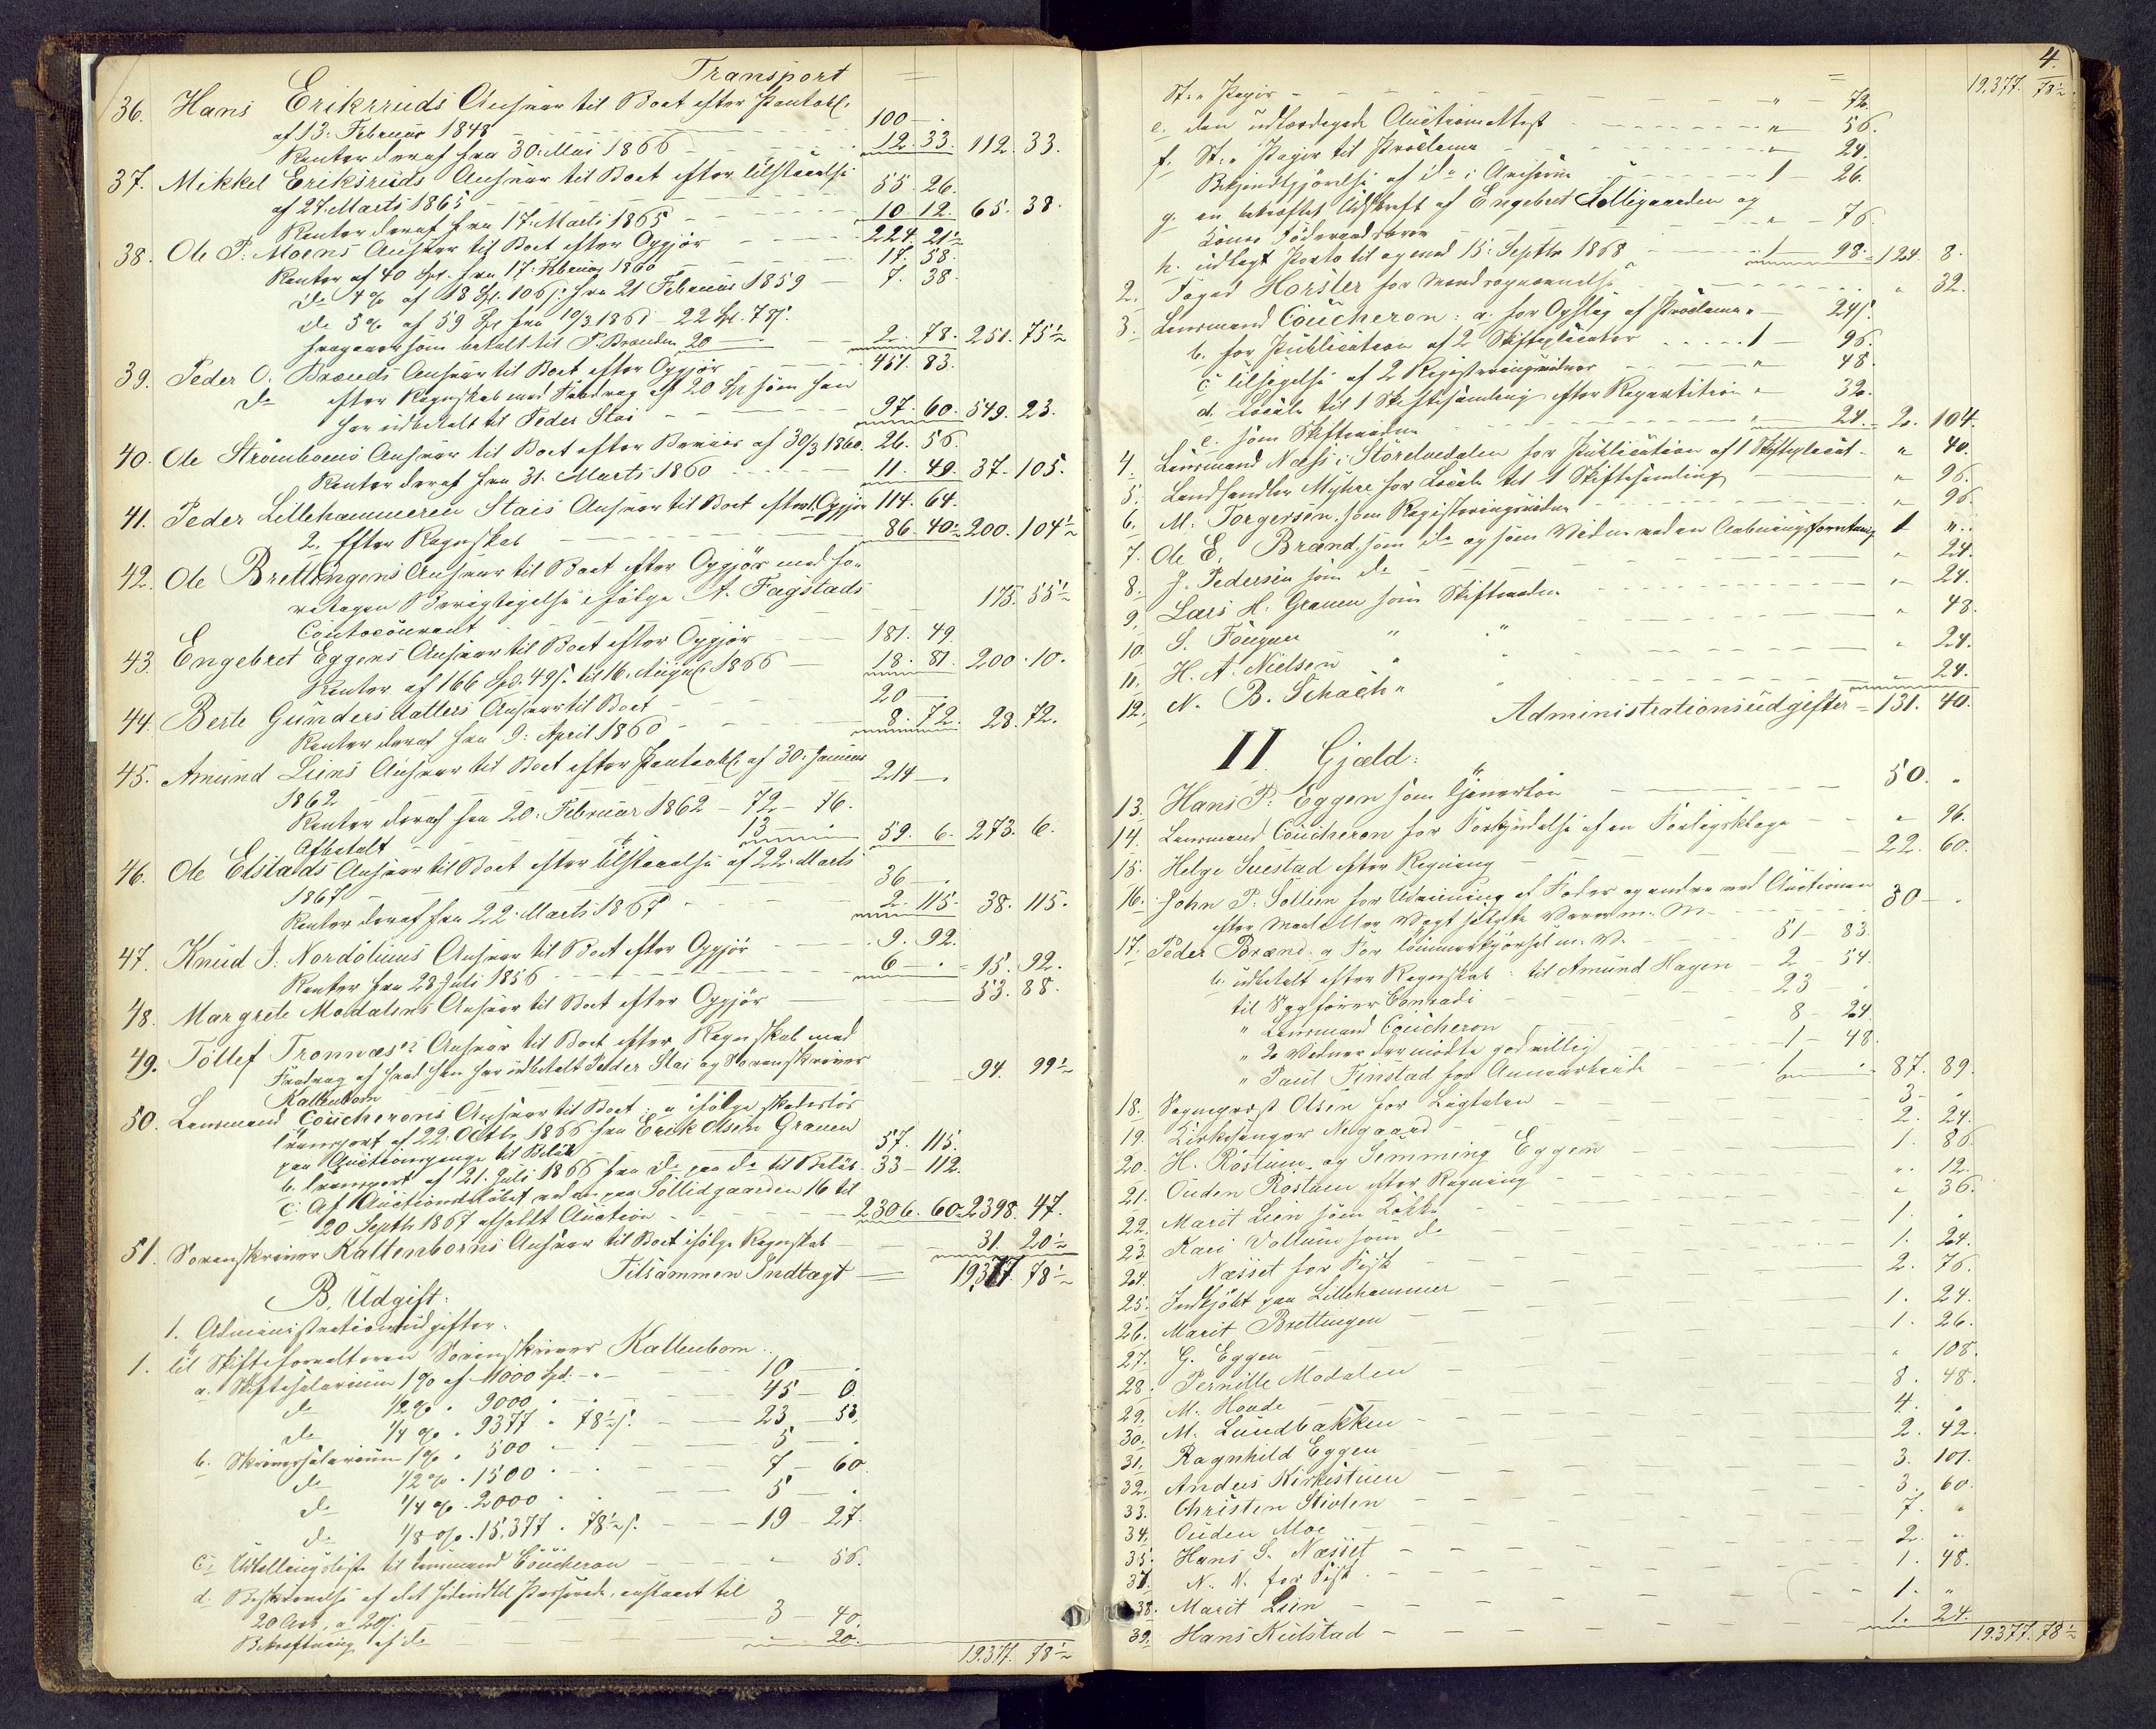 Transport =
36. Hans Eriksruds Ansvar til Boet efter Pantobl.
af 13. Februar 1848 - 100 - .
Renter deraf fra 30. Mai 1866 - 12. 33. 112. 33.
37. Mikkel Eriksruds Ansvar til Boet efter Tilstaaelse
af 27. Marts 1865 - 55. 26.
Renter deraf fra 17. Marts 1865 - 10. 12. 65. 38.
38. Ole P. Moens Ansvar til Boet efter Opgjör - 224. 21½
Renter af 40 Spd. fra 17. Februar 1860 - 17. 58.
do 4% af 18 Spd. 106 s. fra 21 Februar 1859 - 7. 38.
do 5% af 59 Spd. fra 10/3 1861 - 22 Spd. 78 s.
fragaar som betalt til P. Brænden 20 - 2. 78. 251. 75½
39. Peder O. Brænds Ansvar til Boet efter Opgjör - 451. 83.
do efter Regnskab med Fradrag af 20 Spd. som han
har udbetalt til Peder Stai - 97. 60. 549. 23.
40. Ole Strömboens Ansvar til Boet efter Beviis af 30/3 1860. 26. 56.
Renter deraf fra 31. Marts 1860 - 11. 49. 37. 105.
41. Peder Lillehammeren Stais Ansvar til Boet efter 1. Opgjör 114. 64.
2. Efter Regnskab - 86. 40½ 200. 104½
42. Ole Brettingens Ansvar til Boet efter Opgjör med fo-
retagen Berigtigelse ifölge A. Fagstads
Contocourant - 175. 55½
43. Engebret Eggens Ansvar til Boet efter Opgjör - 181. 49.
Renter af 166 Spd. 49 s. til 16. August 1866 - 18. 81. 200. 10.
44. Berte Gundersdatters Ansvar til Boet - 20 - .
Renter deraf fra 9. April 1860 - 8. 72. 28. 72.
45. Amund Liens Ansvar til Boet efter Pantobl. af 30. Januar
1862 - 214 - .
Renter deraf fra 20. Februar 1862 - 72 - 76.
Afbetalt - 13 - 59. 6. 273. 6.
46. Ole Elstads Ansvar til Boet efter Tilstaaelse af 22. Marts
1867 - 36 - .
Renter deraf fra 22. Marts 1867 - 2. 115. 38. 115.
47. Knud J. Nordölums Ansvar til Boet efter Opgjör - 9. 92.
Renter fra 28 Juli 1856 - 6 - . 15. 92.
48. Margrete Modalens Ansvar til Boet efter Opgjör - 53. 88.
49. Tollef Tronnæs's Ansvar til Boet efter Regnskab med
Fradrag af hvad han har udbetalt Peder Stai og Sorenskriver
Kaltenborn - 94. 99½
50. Lensmand Coucherons Ansvar til Boet: a ifölge skadeslös
Transport af 22. Octbr. 1866 fra Erik Olsen Grauen
paa Auctionspenge til Beløb 57. 115.
b. Transport af 21. Juli 1866 fra do paa do til Beløb 33 - 112.
c. Af Auctionsbeløbet paa Sollidgaarden 16 til
20 Septbr 1867 afholdt Auction - 2306. 60. 2398. 47.
51. Sorenskriver Kaltenborns Ansvar til Boet ifölge Regnskab - 31. 20½
Tilsammen Indtægt = 19377. 78½
B. Udgift:
1. Administrationsudgifter.
1. Til Skifteforvalteren Sorenskriver Kaltenborn:
a. Skiftesalarium 1% af 1000 Spd. - 10 - .
do 1/2% " 9000 - 45 - 0.
do 1/4% " 9377 " 78½ s. - 23 - 53.
b. Skriversalarium 1% " 500 - 5 - .
do 1/2% " 1500 - 7 - 60.
do 1/4% " 2000 - 5 - .
do 1/8% " 15.377 " 78½ s. - 19 - 27.
c. til Lensmand Coucheron - 56.
d. Beskrivelse af det hidindtil Passerede, anslaaet til
20 Ark, a 20 s. - 3 40.
Bekræftning af do - 20.
19.377. 78½
4.
= 19.377. 78½
St. Papir - " - 72.
e. den udfærdigede Auctionsattest - " - 56.
f. St. Papir til Proclama - " - 24.
Bekjendtgjörelse af do i Aviserne - 1 - 26.
g. en bekræftet Udskrift af Engebret Solligaarden og
Kones Föderaadsbrev - " - 76.
h. udlagt Porto til og med 15. Septbr 1868 - 1 - 98. 124. 8.
2. Foged Horster for - " 32.
3. Lensmand Coucheron: a. for Opslag af Proclama " - 24 s.
b. for Publication af 2 Skifteplacater - 1 - 96.
c. tilsigelse af 2 Registreringsvidner - " 48.
d. Locale til 1 Skiftesamling efter Repartition " - 32.
e. som Skiftevidne - " 24. 2. 104.
4. Lensmand Næss i Storelvedalen for Publication af 1 Skifteplacat - " 40.
5. Landhandler Myhre for Locale til 1 Skiftesamling - " 96.
6. M. Torgersen, som Registreringsvidne - " 96.
7. Ole E. Brænd, som do og som Vidne ved en Aabningsforretning 1 ".
8. J. Pedersen som do - " 24.
9. Lars H. Grauen som Skiftevidne - " 24.
10. S. Fougner " " - " 48.
11. H. A. Nielsen " " - " 24.
12. N. B. Schach " " - " 24.
Administrationsudgifter = 131. 40.
II Gjæld:
13. Hans P. Eggen som Tjenerlön - 50. "
14. Lensmand Coucheron for Forkyndelse af en Forligsklage - " 96.
15. Helge Suestad efter Regning - 22. 60.
16. John P. Sollien for Udvisning af Foder og andre ved Auctionen
efter Maal eller Vægt solgte Varer m. M. - 30 - .
17. Peder Brænd: a For Tömmerkjörsel m. V. - 51 - 83.
b. udbetalt efter Regnskab: til Amund Hagen - 2 - 54.
til Sagförer Conradi - 23 .
" Lensmand Coucheron - 8 - 24.
" 2 Vidner der mödte godvillig - 1 - 48.
" Paul Finstad for - 1 - . 87. 89.
18. Sogneprest Olsen for Ligtalen - 3 - .
19. Kirkesanger Nygaard - 2. 24.
20. H. Röstum og Semming Eggen - 1. 86.
21. Ouden Rostum efter Regning - ". 12.
22. Marit Lien som Kokke - " 36.
23. Kari Vollum som do - 1. .
24. Næsset for Fisk - 1. 24.
25. Indkjöbt paa Lillehammer - 2. 76.
26. Marit Brettingen - 1. 24.
27. G. Eggen - 1. 26.
28. Pernille Modalen - " 108.
29. M. Hovde - 8. 48.
30. M. Lundbakken - 4. "
31. Ragnhild Eggen - 2. 42.
32. Anders Kirkestuen - 3. 101.
33. Christen Stivten - 3. 60.
34. Ouden Moe - 7. "
35. Hans S. Næsset - 2. "
37. N. N. for Fisk - 1. 48.
38. Marit Lien - 1. "
39. Hans Kulstad - 1. 24.
19.377. 78½